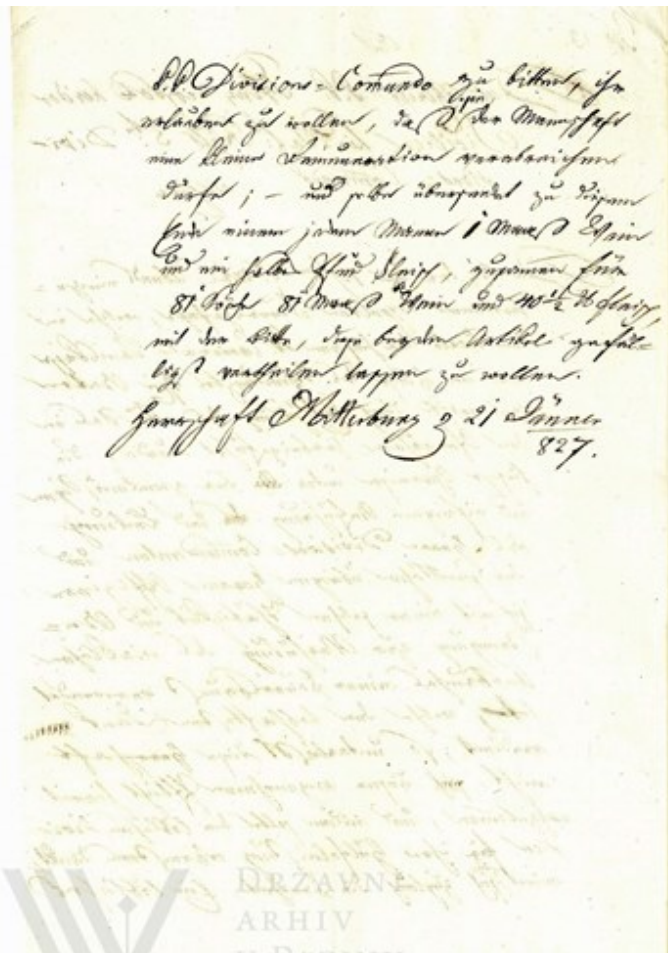 k.k. Divisions=Comando zu bitten, ihr
erlauben zu wollen, daß sie der Mannschaft
eine kleine Remuneration verabreichen
dürfe; – und selbe übersendet zu diesem
Ende einem jeden Manne 1 Maaß Wein
und ein halbes Pfund Fleisch, zusammen für
81 Köpfe 81 Maaß Wein und 40 1/2 ℔ Fleisch,
mit der Bitte, diese beyden Artikel gefäl=
ligst vertheilen lassen zu wollen.
Herrschaft Mitterburg 21 Jänner
827.
DRŽAVNI
ARHIV
U PAZINU